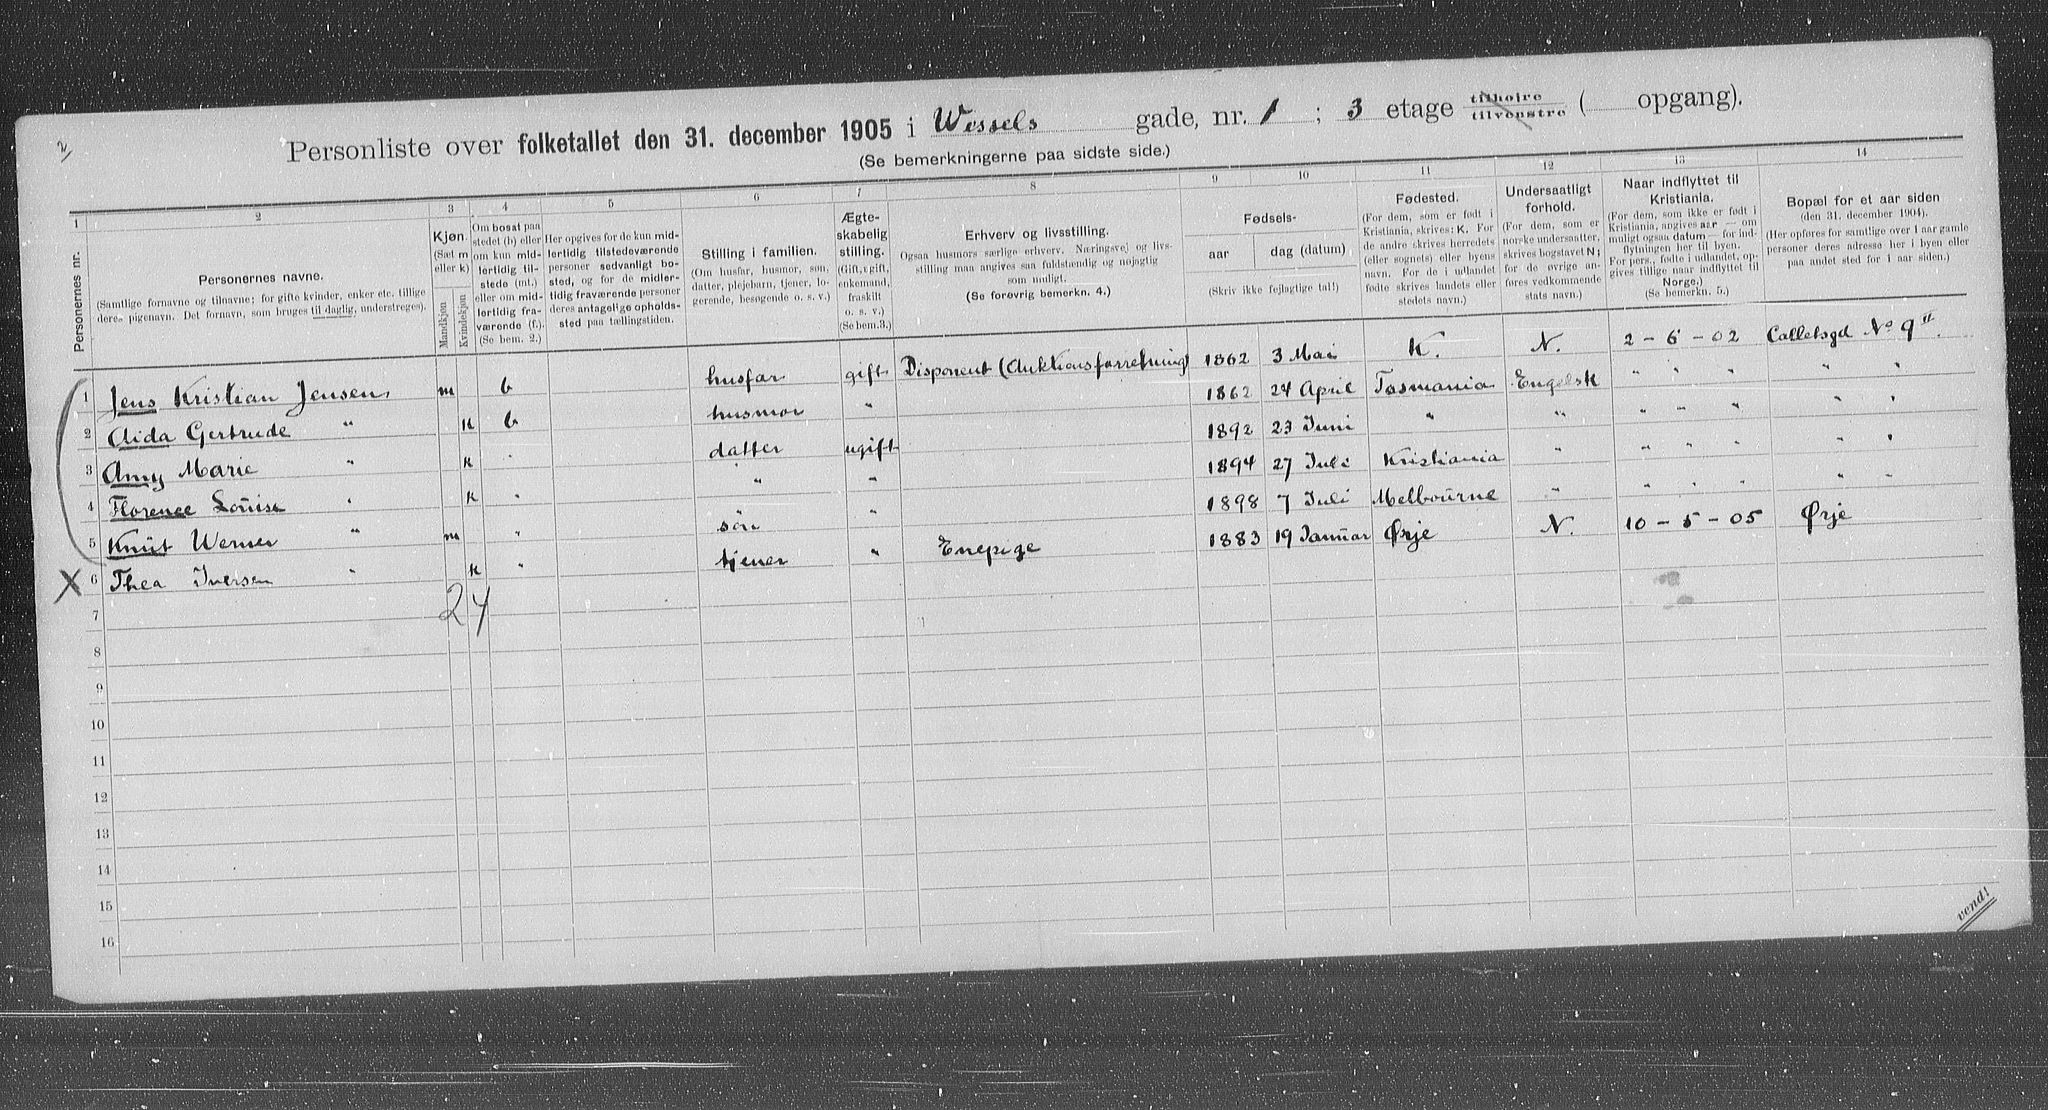 2
Personliste over folketallet den 31. december 1905 i Wessels gade, nr. 1 ; 3 etage tilhøjre tilvenstre ( opgang).
(Se bemerkningerne paa sidste side.)
1 2 3 4 5 6 7 8 9 10 11 12 13 14
Personernes nr.
Personernes navne.
(Samtlige fornavne og tilnavne; for gifte kvinder, enker etc. tillige
deres pigenavn. Det fornavn, som bruges til daglig, understreges).
Kjøn.
(Sæt m
eller k)
Mandkjøn
Kvindekjøn
Om bosat paa
stedet (b) eller
om kun mid-
lertidig til-
stede (mt.)
eller om mid-
lertidig fra-
værende (f.).
(Se bem. 2.)
Her opgives for de kun mid-
lertidig tilstedeværende
personer sedvanlig bo-
sted, og for de midler-
tidig fraværende personer
deres antagelige opholds-
sted paa tællingstiden.
Stilling i familien.
(Om husfar, husmor, søn,
datter, plejebarn, tjener, lo-
gerende, besøgende o. s. v.)
Ægte-
skabelig
stilling.
(Gift, ugift,
enkemand,
fraskilt
o. s. v.)
(Se bem.3.)
Erhverv og livsstilling.
Ogsaa husmors særlige erhverv. Næringsvej og livs-
stilling maa angives saa fuldstændig og nøjagtig
som muligt.
(Se forøvrig bemerkn. 4.)
Fødsels-
aar
dag (datum)
(Skriv ikke fejlagtige tal!)
Fødested.
(For dem, som er født i
Kristiania, skrives: K. For
de andre skrives herredets
(eller sognets) eller byens
navn. For de i udlandet
fødte skrives landets eller
stedets navn.)
Undersaatligt
forhold.
(For dem, som er
norske undersaatter,
skrives bogstavet N;
for de øvrige an-
føres vedkommende
stats navn.)
Naar indflyttet til
Kristiania.
(For dem, som ikke er født i
Kristiania, angives aar — om
muligt ogsaa datum — for ind-
flytningen her til byen.
For pers., fødte i udlandet, op-
gives tillige naar indflyttet til
Norge.)
(Se bemerkn. 5.)
Bopæl for et aar siden
(den 31. december 1904).
(Her opføres for samtlige over 1 aar gamle
personer deres adresse her i byen eller
paa andet sted for 1 aar siden.)
1 Jens Kristian Jensen m b husfar gift Disponent (Auktionsforretning) 1862 3 Mai K. N. 2 - 6 - 02 Calletsgd No 9 II
2 Aida Gertrude " k b husmor " 1862 24 April Tasmania Engelsk " " " " "
3 Amy Marie " k " datter ugift 1892 23 Juni " " " " " " "
4 Florence Louise " k " " " 1894 27 Juli Kristiania " " " " " "
5 Knut Werner " m " søn " 1898 7 Juli Melbourne " " " " " "
X 6 Thea Iversen " k " tjener " Enepige 1883 19 Januar Ørje N. 10 - 5 - 05 Ørje
7 2 4
8
9
10
11
12
13
14
15
16
vend!